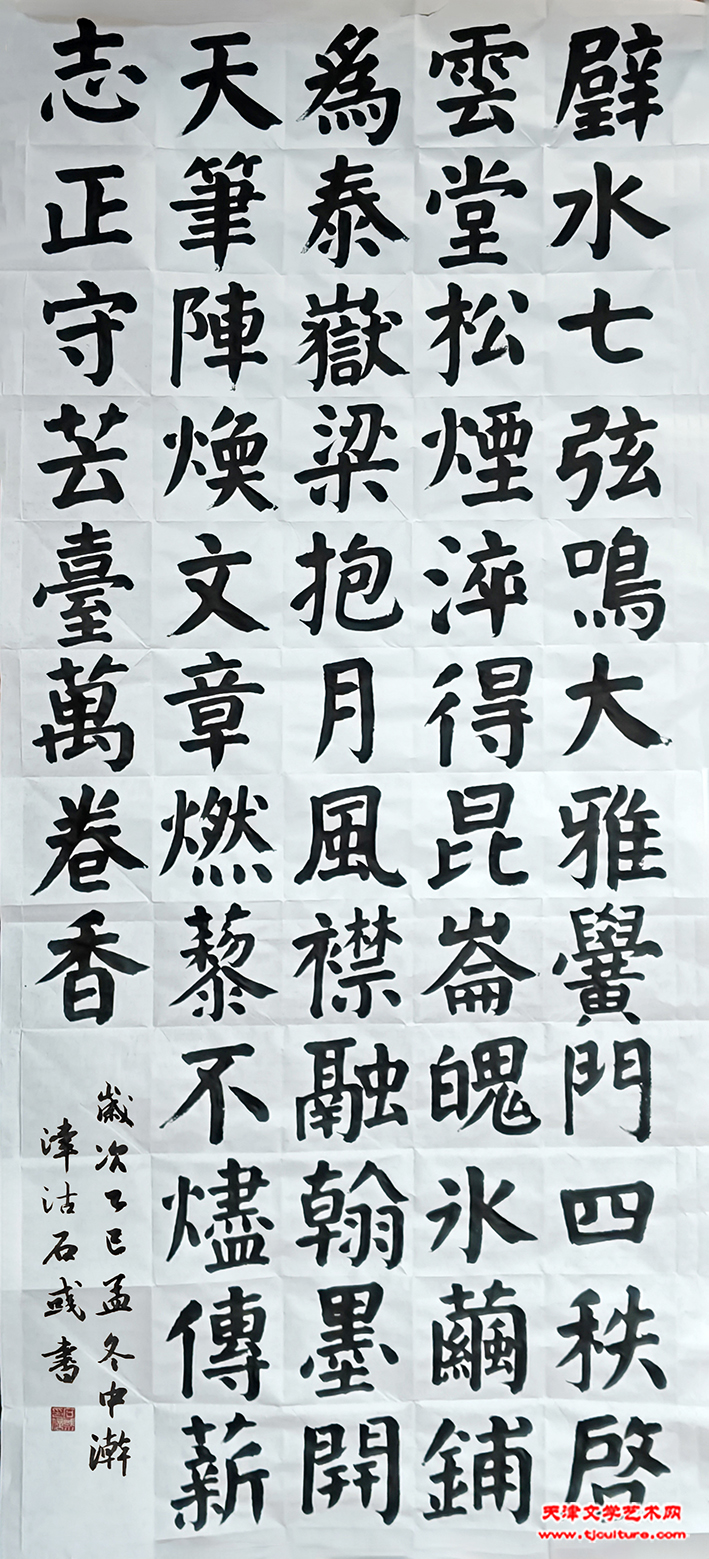 璧水七弦鳴大雅黌門四秩啓
雲堂松煙淬得昆崙魄氷繭鋪
爲泰嶽梁抱月風襟融翰墨開
天筆陣焕文章燃藜不燼傳薪
志正守芸臺萬卷香
歲次乙巳孟冬中澣
津沽石彧書
天津文学艺术网
www.tjculture.com